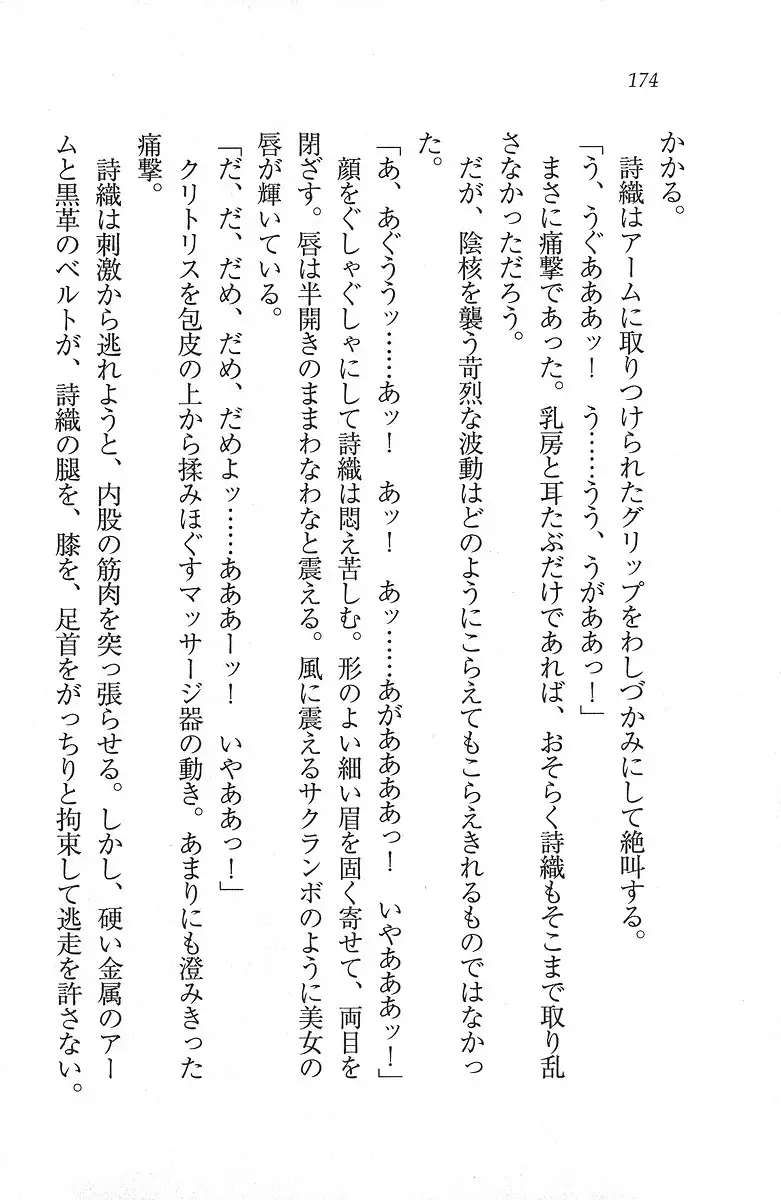 174
かかる。
詩織はアームに取りつけられたグリップをわしづかみにして絶叫する。
「う、うぐあああッ！　う……うう、うがああっ！」
まさに痛撃であった。乳房と耳たぶだけであれば、おそらく詩織もそこまで取り乱
さなかっただろう。
だが、陰核を襲う苛烈な波動はどのようにこらえてもこらえきれるものではなかっ
た。
「あ、あぐううッ……あッ！　あッ！　あッ……あがああああっ！　いやあああッ！」
顔をぐしゃぐしゃにして詩織は悶え苦しむ。形のよい細い眉を固く寄せて、両目を
閉ざす。唇は半開きのままわなわなと震える。風に震えるサクランボのように美女の
唇が輝いている。
「だ、だ、だめ、だめ、だめよッ……あああーッ！　いやああっ！」
クリトリスを包皮の上から揉みほぐすマッサージ器の動き。あまりにも澄みきった
痛撃。
詩織は刺激から逃れようと、内股の筋肉を突っ張らせる。しかし、硬い金属のアー
ムと黒革のベルトが、詩織の腿を、膝を、足首をがっちりと拘束して逃走を許さない。